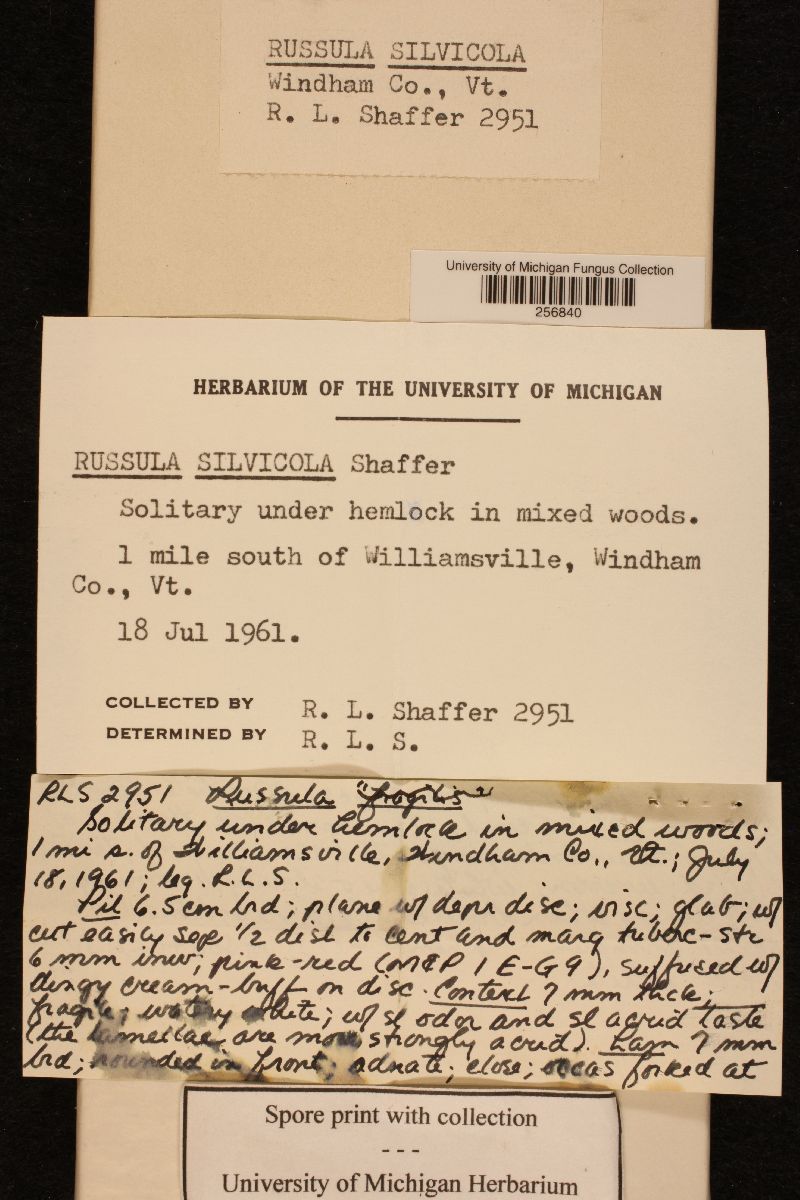 RUSSULA SILVICOLA
Windham Co., Vt.
R. L. Shaffer 2951
University of Michigan Fungus Collection
256840
HERBARIUM OF THE UNIVERSITY OF MICHIGAN
RUSSULA SILVICOLA Shaffer
Solitary under hemlock in mixed woods.
1 mile south of Williamsville, Windham
Co., Vt.
18 Jul 1961.
COLLECTED BY R. L. Shaffer 2951
DETERMINED BY R. L. S.
RLS 2951 Russula "fragilis"
Solitary under hemlock in mixed woods;
1 mi s. of Williamsville, Windham Co., Vt.; July
18, 1961; leg. R.L.S.
Pil 6.5 cm brd; plane w/ depr disc; visc; glab; w/
cut easily sep 1/2 dist to cent and marg tuberc-str
6 mm inw; pink-red (M&P 1 E-G 9), suffused w/
dingy cream-buff on disc. Context 7 mm thick;
fragile; watery white; w/ sl odor and sl acrid taste
(the lamellae are more strongly acrid). Lam 7 mm
brd; rounded in front; adnate; close; occas forked at
Spore print with collection
- - -
University of Michigan Herbarium